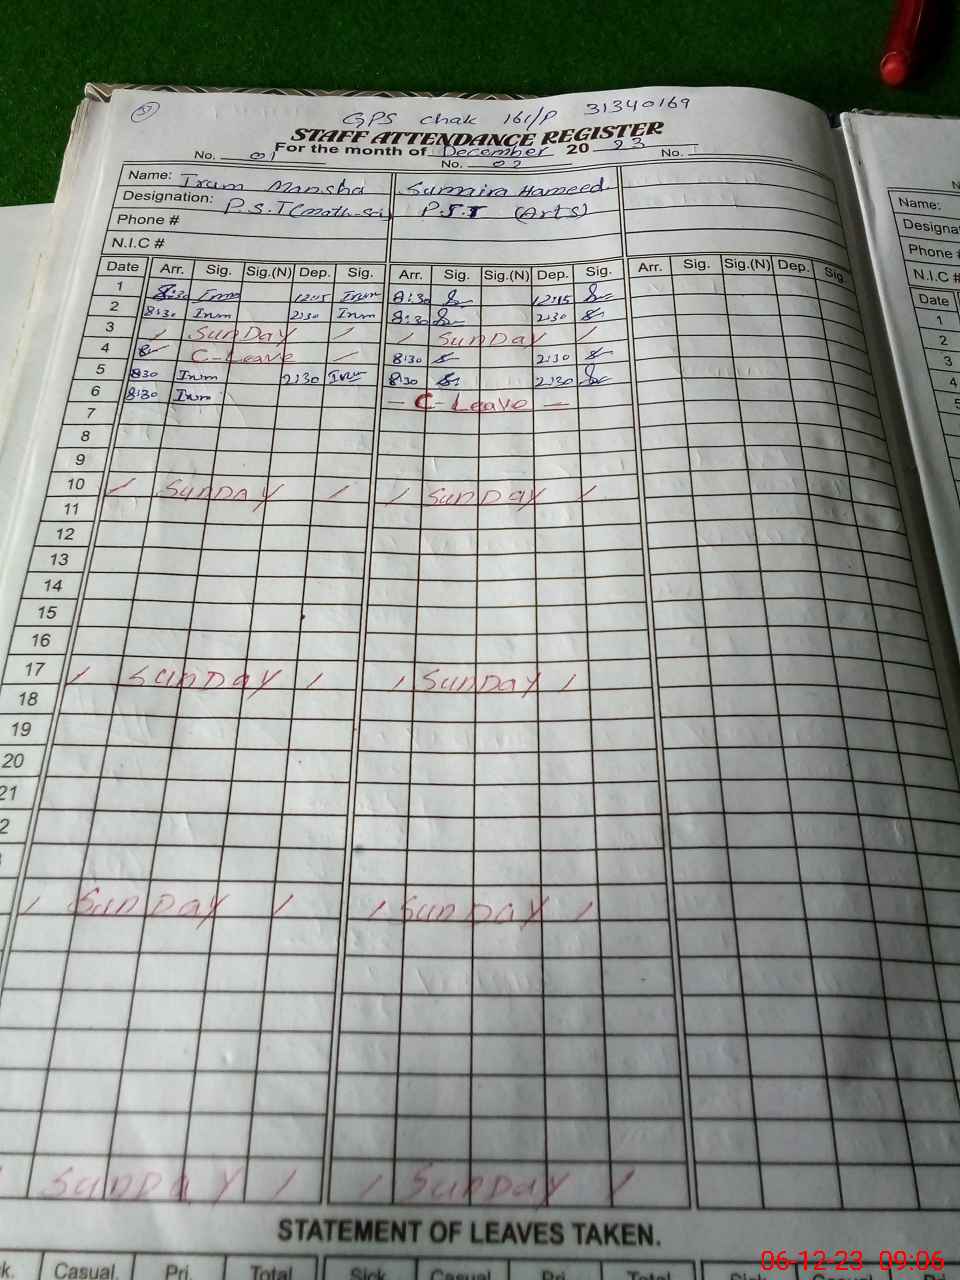 37
GPS chak 161/P 31340169
STAFF ATTENDANCE REGISTER
For the month of December 20 23
No. 01 No. 02 No.
Name: Iram Mansha Sumaira Hameed
Designation: P.S.T (Math-Sci) P.S.T (Arts)
Phone #
N.I.C #
Date Arr. Sig. Sig.(N) Dep. Sig. Arr. Sig. Sig.(N) Dep. Sig. Arr. Sig. Sig.(N) Dep. Sig.
1 8:30 Irum 12:15 Irum 8:30 12:15
2 8:30 Irum 2:30 Irum 8:30 2:30
3 / SunDay / / SunDay /
4 C-Leave / 8:30 2:30
5 8:30 Irum 2:30 Irum 8:30 2:30
6 8:30 Irum - C-Leave -
7
8
9
10 / SunDay / / SunDay /
11
12
13
14
15
16
17 / SunDay / / SunDay /
18
19
20
21
2
/ SunDay / / SunDay /
/ SunDay / / SunDay /
STATEMENT OF LEAVES TAKEN.
k. Casual. Pri. Total Sick Casual Pri. Total Sick
Name:
Designa
Phone #
N.I.C #
Date
1
2
3
4
5
06-12-23 09:06